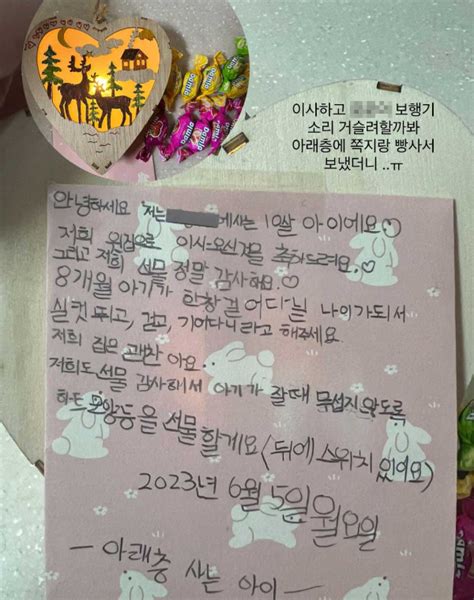 이사하고 보행기
소리 거슬려할까봐
아래층에 쪽지랑 빵사서
보냈더니 ..ㅠ
안녕하세요 저는 에사는 10쌀 아이에요♡
저희 윗집으로 이사오신걸 축하드려요.♡
그리고 저희 선물 정말 감사해요.♡
8개월 아기가 한창 걸어다닐 나이가되서
실컷 뛰고, 걷고, 기어다니라고 해주세요
저희 집은 괜찬아요.
저희도 선물 감사해서 아기가 잘때 무섭지 않도록
하는 모양등을 선물할게요 (뒤에 스위치 있어요)
2023년 6월 5일 월요일
— 아래층 사는 아이 —